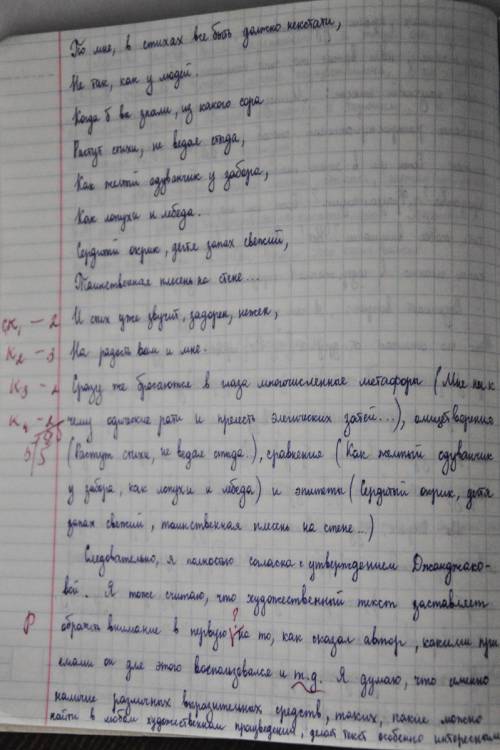 По мне, в стихах все быть должно некстати,
Не так, как у людей.
Когда б вы знали, из какого сора
Растут стихи, не ведая стыда,
Как желтый одуванчик у забора,
Как лопухи и лебеда.
Сердитый окрик, дегтя запах свежий,
Таинственная плесень на стене...
ск1 - 2 И стих уже звучит, задорен, нежен,
к2 - 3 На радость вам и мне.
к3 - 2 Сразу же бросаются в глаза многочисленные метафоры (Мне ни к
к4 - 2 чему одические рати и прелесть элегических затей...), олицетворения
(Растут стихи, не ведая стыда.), сравнения (Как желтый одуванчик
у забора, как лопухи и лебеда) и эпитеты (Сердитый окрик, дегтя
запах свежий, таинственная плесень на стене...)
Следовательно, я полностью согласна с утверждением Джанджако-
вой. Я тоже считаю, что художественный текст заставляет
Р обратить внимание в первую ? на то, как сказал автор, какими при
емами он для этого воспользовался и т.д. Я думаю, что именно
наличие различных выразительных средств, таких, какие можно
найти в любом художественном произведении, делает текст особенно интересным